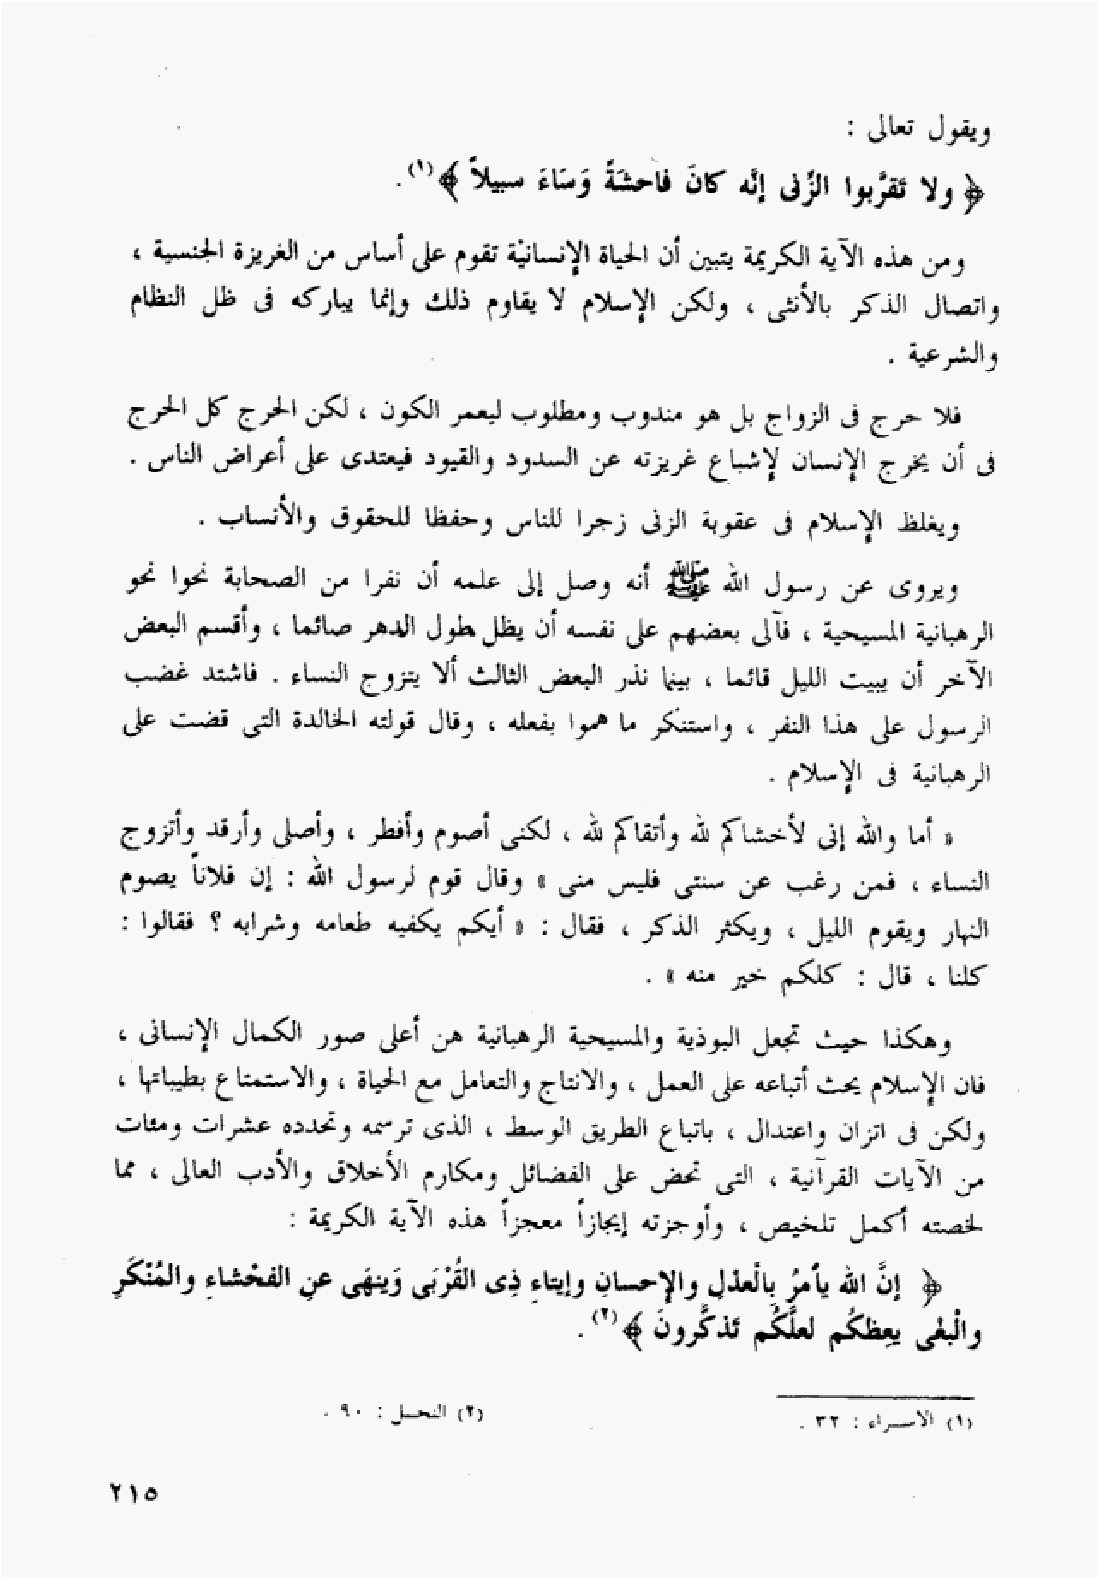 ويقول تعالى :
﴿ ولا تَقرَّبوا الزِّنى إنَّه كانَ فاحشَةً وَسَاءَ سبيلاً ﴾(١) .
ومن هذه الآية الكريمة يتبين أن الحياة الإنسانية تقوم على أساس من الغريزة الجنسية ،
واتصال الذكر بالأنثى ، ولكن الإسلام لا يقاوم ذلك وإنما يباركه فى ظل النظام
والشرعية .
فلا حرج فى الزواج بل هو مندوب ومطلوب ليعمر الكون ، لكن الحرج كل الحرج
فى أن يخرج الإنسان لإشباع غريزته عن السدود والقيود فيعتدى على أعراض الناس .
ويغلظ الإسلام فى عقوبة الزنى زجرا للناس وحفظا للحقوق والأنساب .
ويروى عن رسول الله ﷺ أنه وصل إلى علمه أن نفرا من الصحابة نحوا نحو
الرهبانية المسيحية ، فآلى بعضهم على نفسه أن يظل طول الدهر صائما ، وأقسم البعض
الآخر أن يبيت الليل قائما ، بينما نذر البعض الثالث ألا يتزوج النساء . فاشتد غضب
الرسول على هذا النفر ، واستنكر ما هموا بفعله ، وقال قولته الخالدة التى قضت على
الرهبانية فى الإسلام .
« أما والله إنى لأخشاكم لله وأتقاكم لله ، لكنى أصوم وأفطر ، وأصلى وأرقد وأتزوج
النساء ، فمن رغب عن سنتى فليس منى » وقال قوم لرسول الله : إن فلاناً يصوم
النهار ويقوم الليل ، ويكثر الذكر ، فقال : « أيكم يكفيه طعامه وشرابه ؟ فقالوا :
كلنا ، قال : كلكم خير منه » .
وهكذا حيث تجعل البوذية والمسيحية الرهبانية هن أعلى صور الكمال الإنسانى ،
فان الإسلام يحث أتباعه على العمل ، والانتاج والتعامل مع الحياة ، والاستمتاع بطيباتها ،
ولكن فى اتزان واعتدال ، باتباع الطريق الوسط ، الذى ترسمه وتحدده عشرات ومئات
من الآيات القرآنية ، التى تحض على الفضائل ومكارم الأخلاق والأدب العالى ، مما
لخصته أكمل تلخيص ، وأوجزته إيجازاً معجزاً هذه الآية الكريمة :
﴿ إنَّ الله يأمرُ بالْعدْلِ والإحسانِ وإيتاءِ ذِى القُرْبَى وَينهَى عنِ الفحْشاءِ والمُنْكَرِ
والْبغْى يعِظكُم لعلَّكُم تَذكَّرونَ ﴾(٢) .
(١) الاسراء : ٣٢ .
(٢) النحل : ٩٠ .
٢١٥